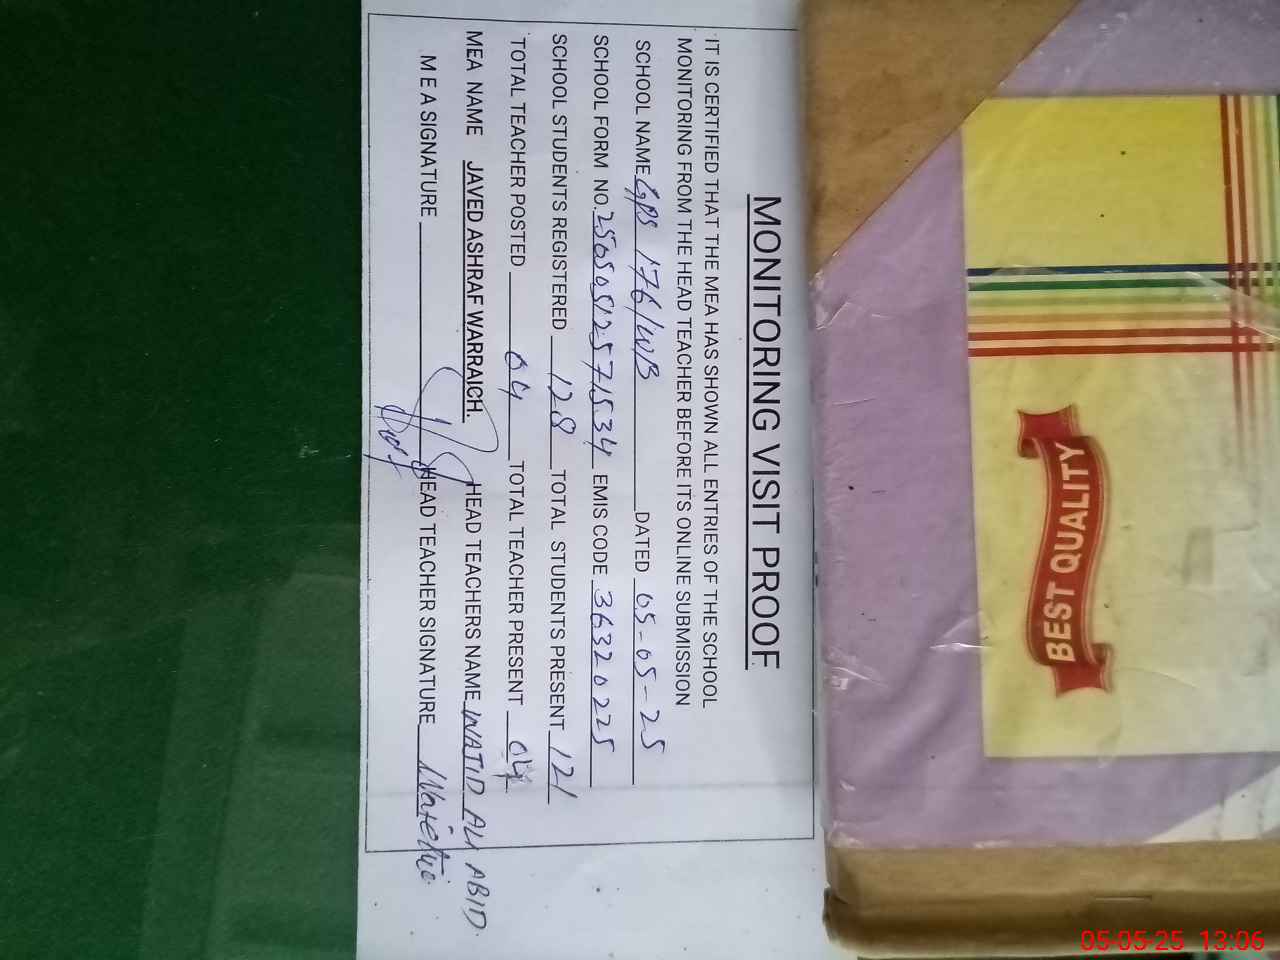 MONITORING VISIT PROOF
IT IS CERTIFIED THAT THE MEA HAS SHOWN ALL ENTRIES OF THE SCHOOL
MONITORING FROM THE HEAD TEACHER BEFORE ITS ONLINE SUBMISSION
SCHOOL NAME GPS 176/WB DATED 05-05-25
SCHOOL FORM NO. 25050512571534 EMIS CODE 36320225
SCHOOL STUDENTS REGISTERED 128 TOTAL STUDENTS PRESENT 121
TOTAL TEACHER POSTED 04 TOTAL TEACHER PRESENT 04
MEA NAME JAVED ASHRAF WARRAICH. HEAD TEACHERS NAME WAJID ALI ABID
MEA SIGNATURE HEAD TEACHER SIGNATURE
BEST QUALITY
05-05-25 13:06